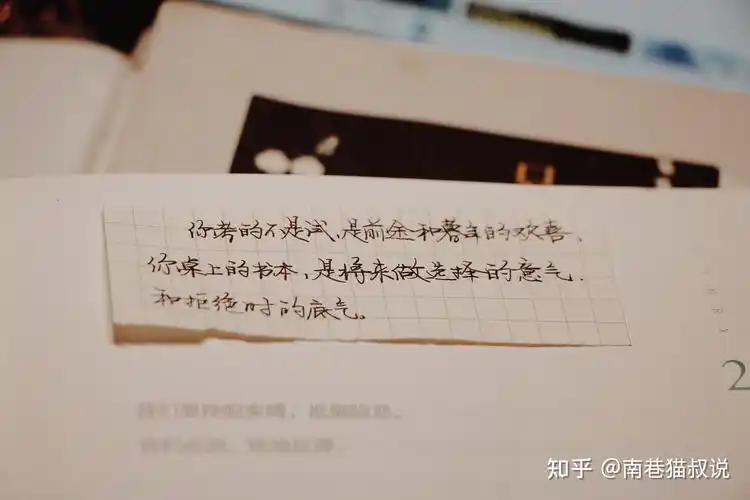 你考的不是试，是前金和暮年的欢喜，
你桌上的书本，是将来做选择的意气
和拒绝时的底气。
2
知乎 @南巷猫叔说